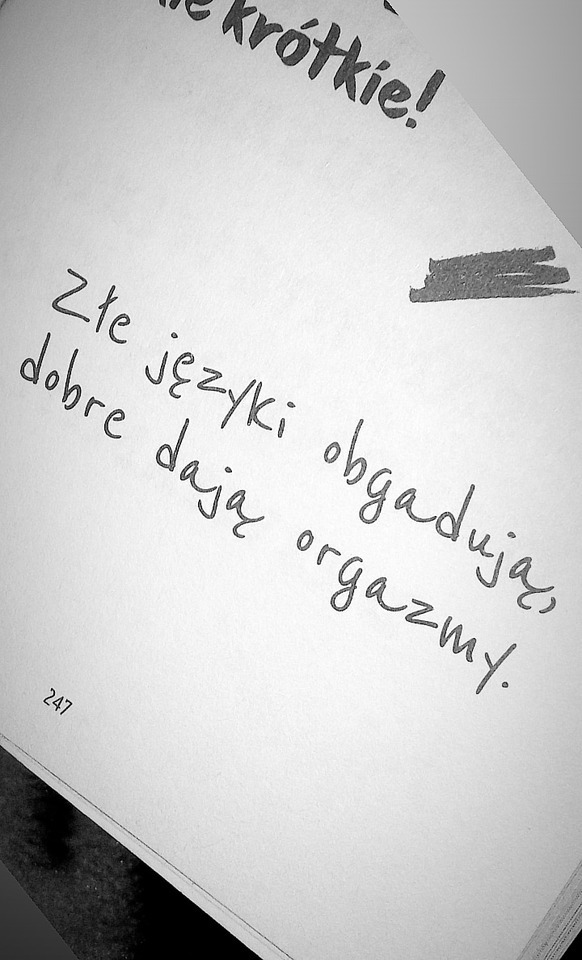 krótkie!
Złe języki obgadują,
dobre dają orgazmy.
247